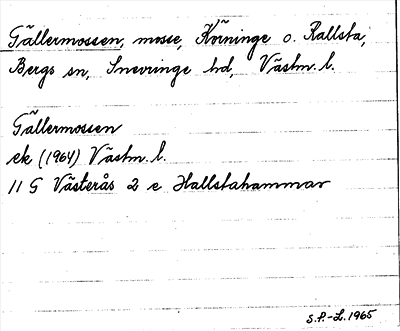 Gällermossen, mosse, Körninge o. Rallsta,
Bergs sn, Snevringe hd, Västm. l.
Gällermossen
ek (1964) Västm. l.
11 G Västerås 2 e Hallstahammar
S.P.-L. 1965